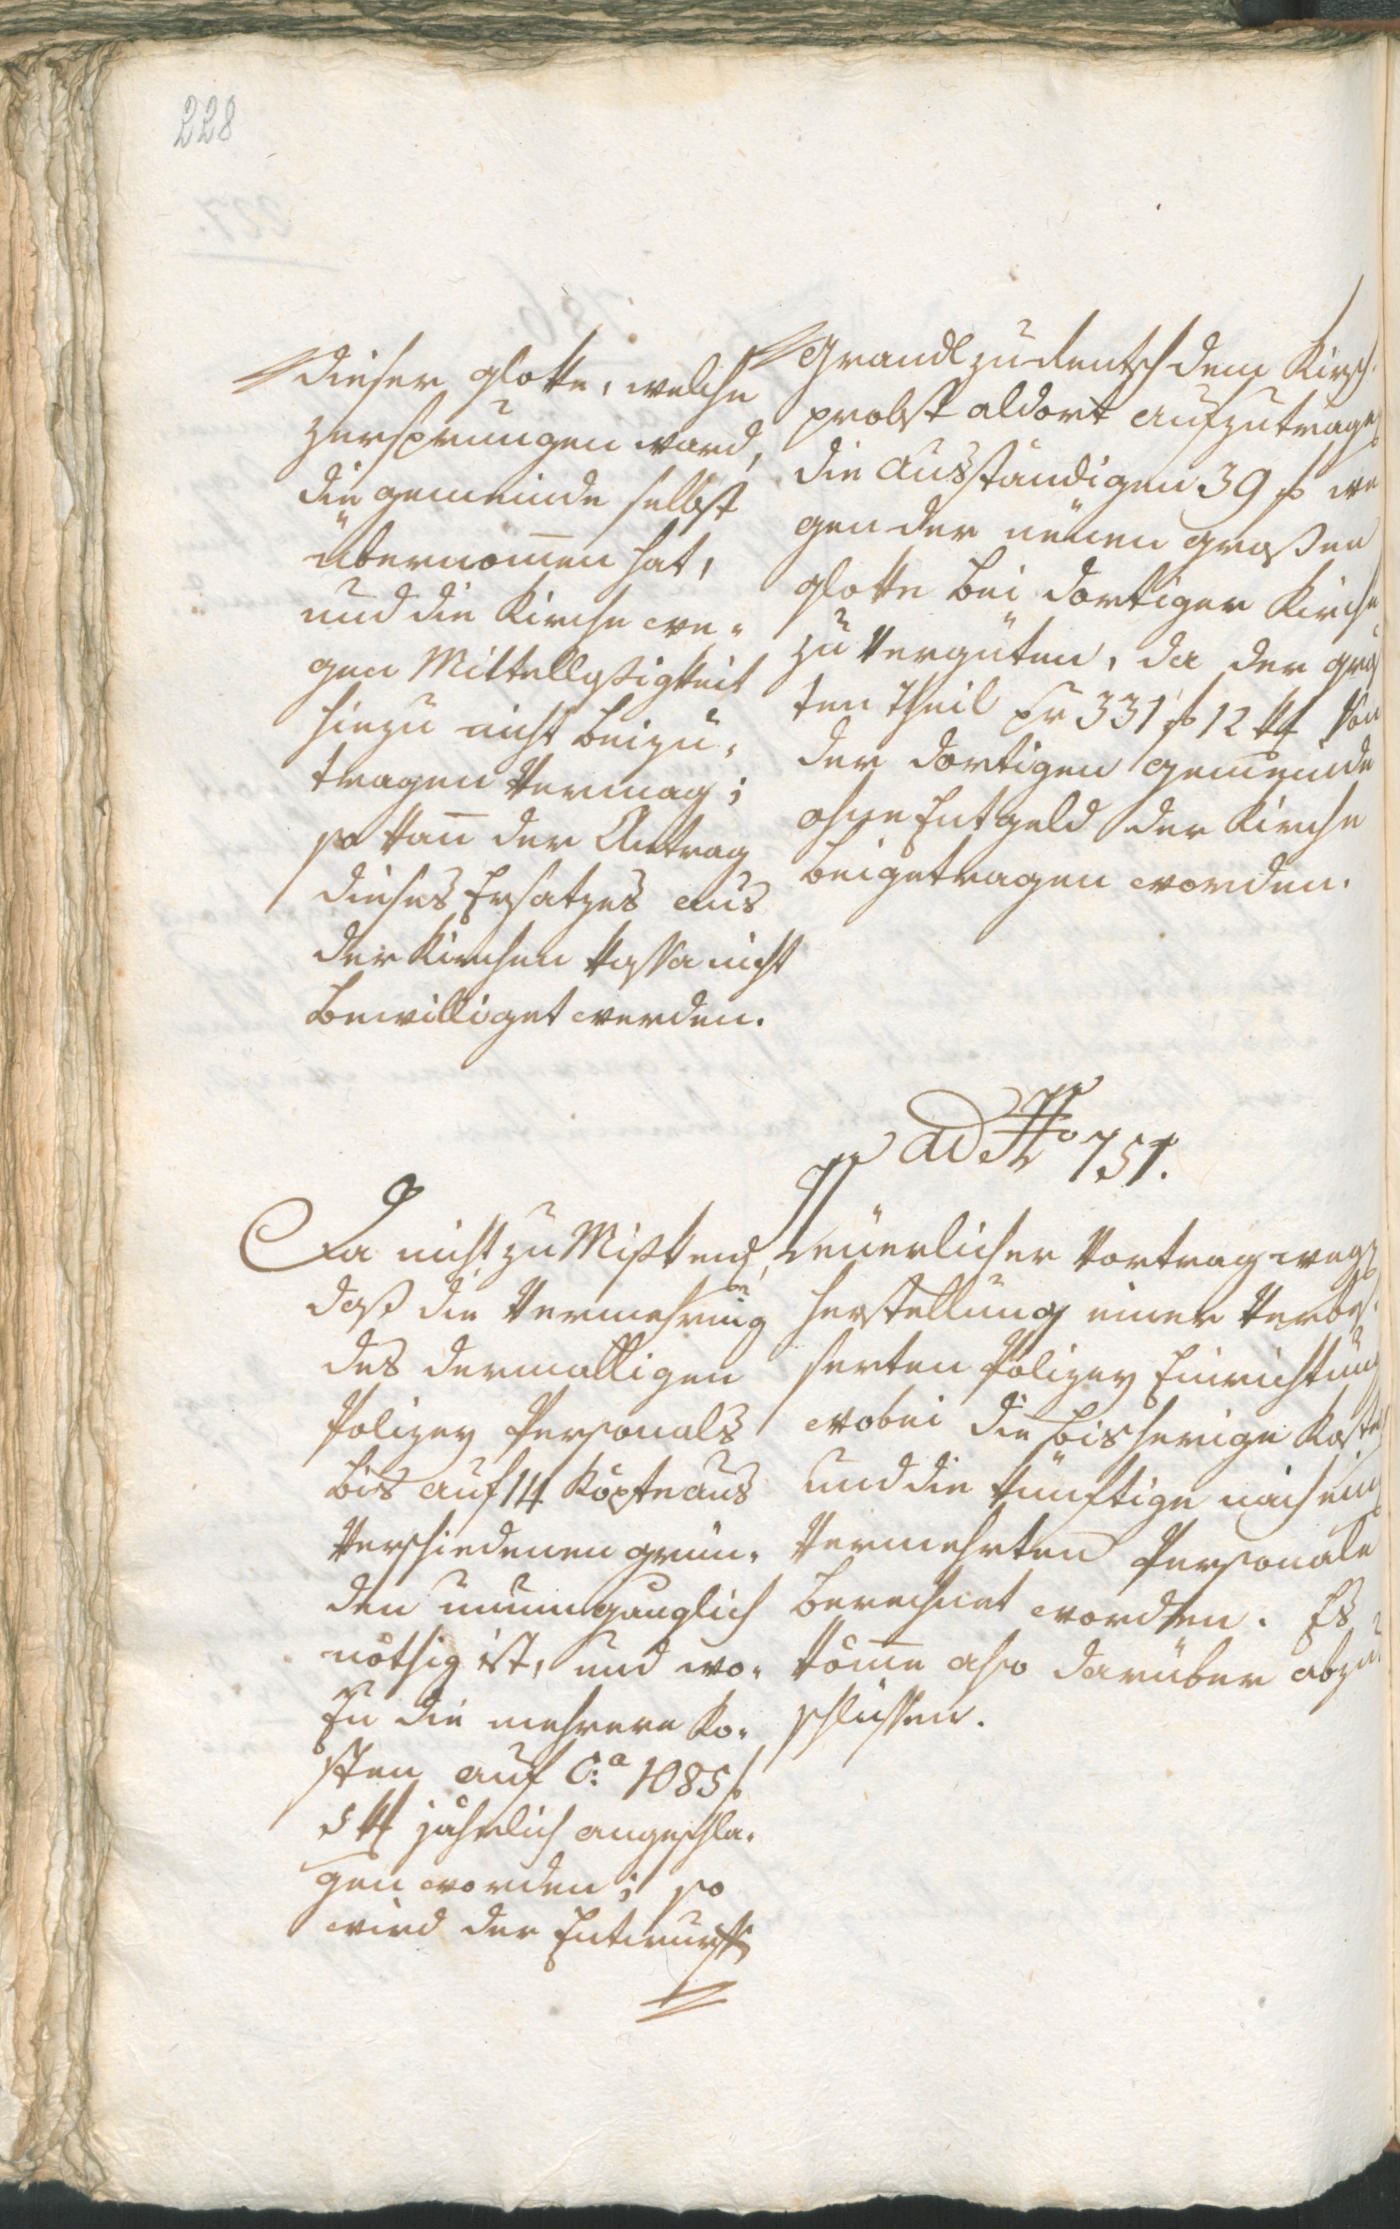 228
dieser glokke, welche
zersprungen ward,
die gemeinde selbst
übernom̄en hat,
und die Kirche we-
gen Mittellosigkeit
hiezu nicht beizu-
tragen vermag;
so kan̄ der Antrag
dieses Ersatzes aus
der Kirchen kassa nicht
bewilliget werden.
dem Kirch-
probst aldort aufzutragen
die ausständigen 39 f we
gen der neuen grossen
glokke bei dortiger Kirche
zu vergüten, da der grös
ten Theil pr 331 f 12 kr von
der dortigen gemeinde
ohne Entgeld der Kirche
beigetragen worden.
ad No 751.
Da nicht zu
daß die Vermehrung
des dermalligen
Polizey Personals
bis auf 14 Köpfe aus
verschiedenen grün-
den unumgänglich
nöthig ist, und wo-
zu die mehrere Ko-
sten auf C:a 1085 f
5 kr jährlich angeschla-
gen worden; so
wird der Entwurff
Neuerlicher Vortrag wegen
herstellung einer verbes-
serten Polizey Einrichtung
wobei die bisherige Kosten
und die künftige nach
vermehrten Personale
berechnet worden. Es
köm̄e also darüber abzu
schlüssen.